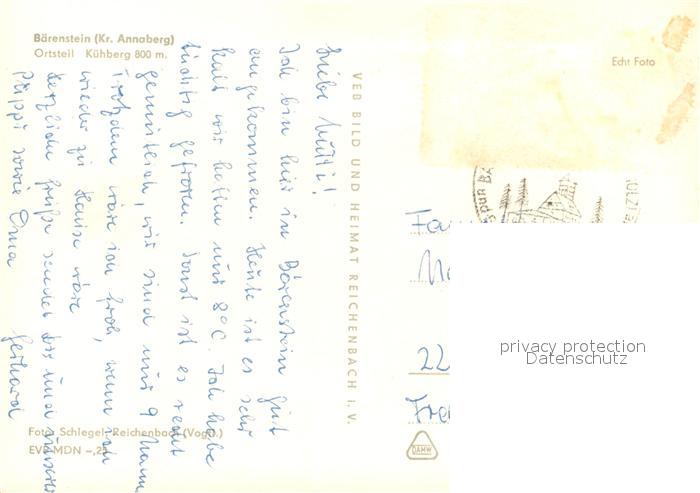 Bärenstein (Kr. Annaberg)
Ortsteil Kühberg 800 m.
Echt Foto
Liebe Mutti!
Ich bin hier in Bärenstein gut
angekommen. Heute ist es sehr
kalt wir hatten nur 8°C. Ich habe
tüchtig gefroren. Sonst ist es recht
gemütlich, wir sind nur 9 Mann
trotzdem wäre ich froh, wenn ich
wieder zu Hause wäre
Herzliche Grüße sendet dir und
Pappi sowie Oma Gerhard
VEB BILD UND HEIMAT REICHENBACH i. V.
Fa
22
Fre
privacy protection
Datenschutz
Foto: Schlegel, Reichenbach (Vogtl.)
EVP MDN -,25
DAMW